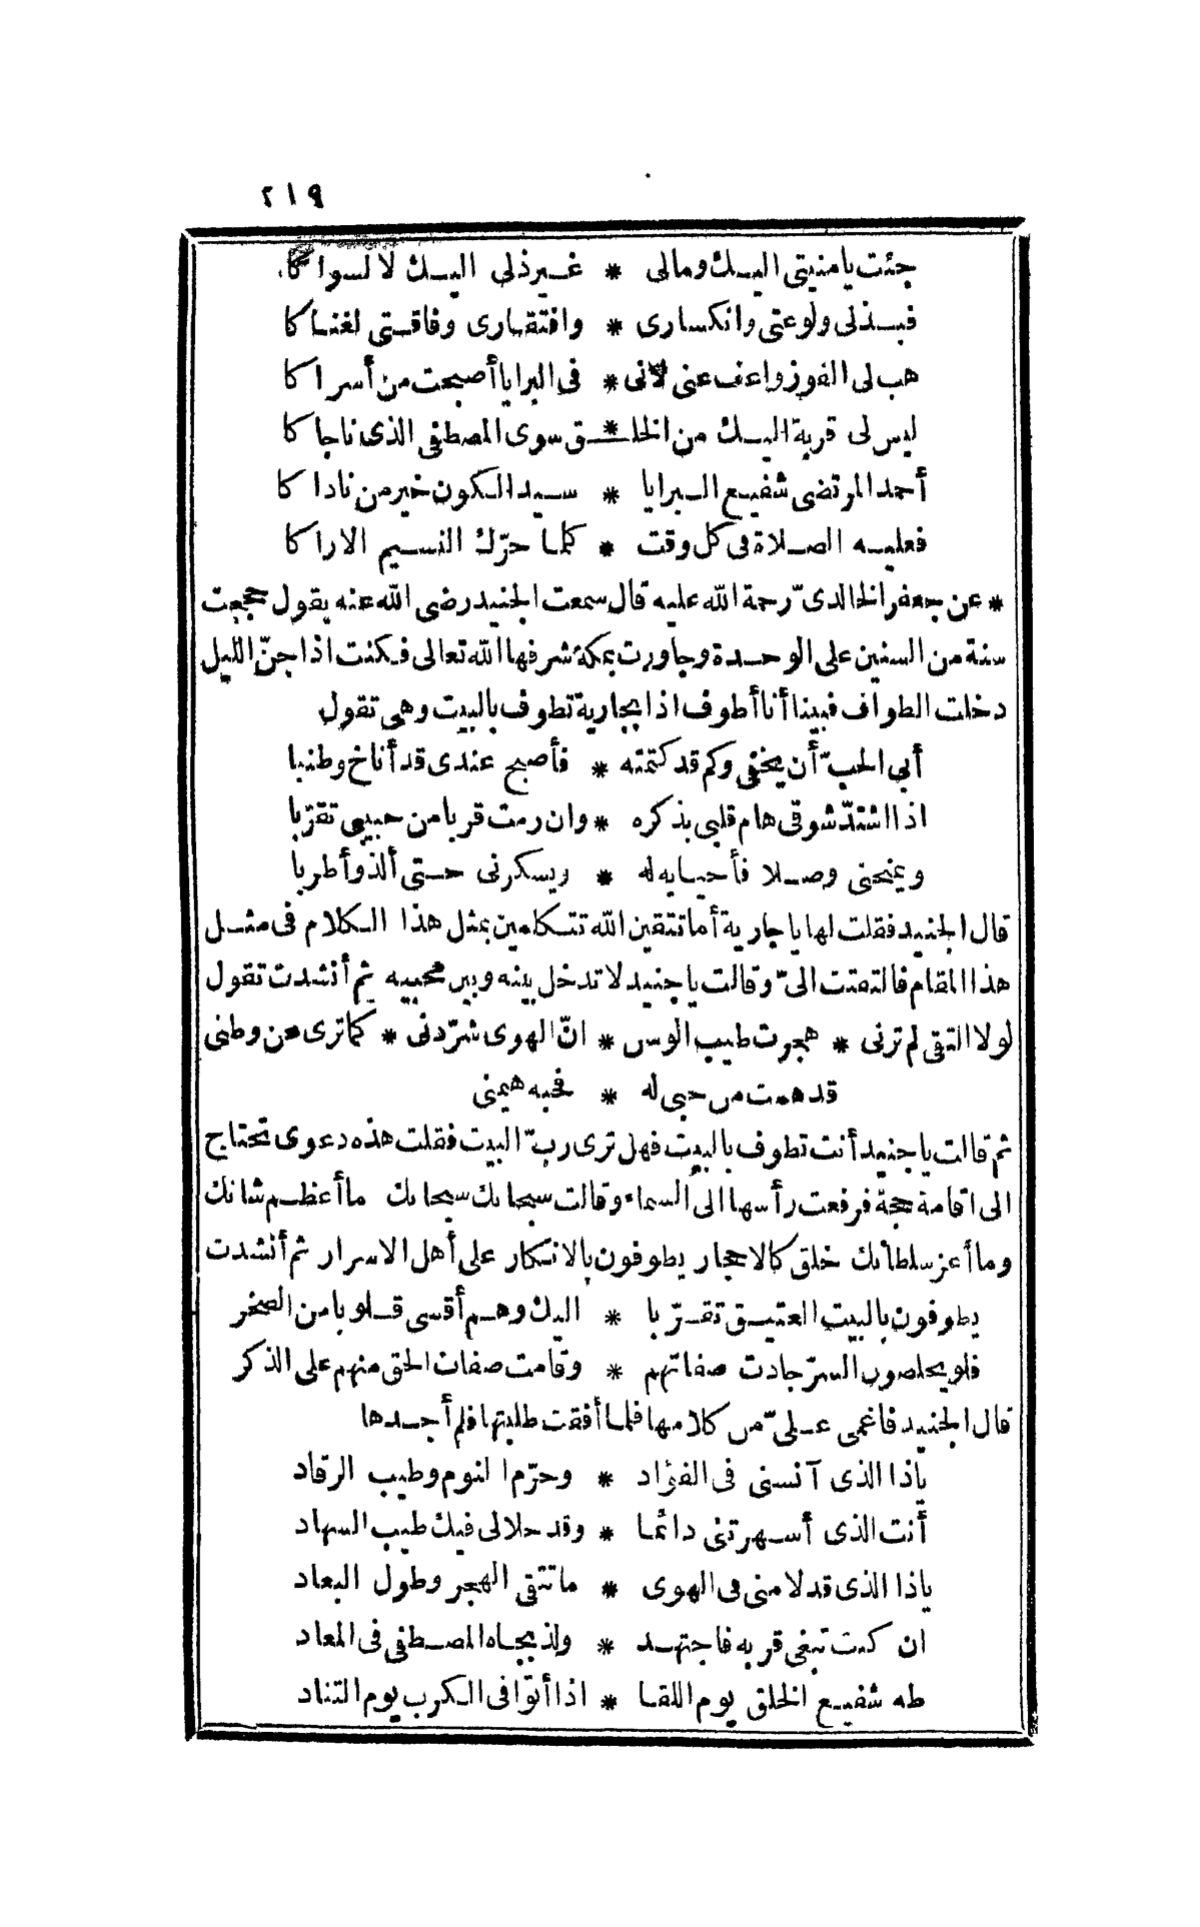 ٢١٩
جئت يا منيتى اليك ومالى * غير ذلى اليك لا لسواكا
فبذلى ولوعتى وانكسارى * وافتقارى وفاقتى لغناكا
هب لى الفوز واعف عنى لأنى * فى البرايا أصبحت من أسراكا
ليس لى قربة اليك من الخلـ * ـق سوى المصطفى الذى ناجاكا
أحمد المرتضى شفيع البرايا * سيد الكون خير من ناداكا
فعليه الصلاة فى كل وقت * كلما حرّك النسيم الاراكا
* عن جعفر الخالدىّ رحمة الله عليه قال سمعت الجنيد رضى الله عنه يقول حججت
سنة من السنين على الوحدة وجاورت بمكة شرفها الله تعالى فكنت اذا جنّ الليل
دخلت الطواف فبينا أنا أطوف اذا بجارية تطوف بالبيت وهى تقول
أبى الحبّ أن يخفى وكم قد كتمته * فأصبح عندى قد أناخ وطنبا
اذا اشتدّ شوقى هام قلبى بذكره * وان رمت قربا من حبيبى تقرّبا
ويمنحنى وصلا فأحيا به له * ويسكرنى حتى ألذ وأطربا
قال الجنيد فقلت لها يا جارية أما تتقين الله تتكلمين بمثل هذا الكلام فى مثل
هذا المقام فالتفتت الىّ وقالت يا جنيد لا تدخل بينه وبين محبيه ثم أنشدت تقول
لولا التقى لم ترنى * هجرت طيب الوسن * انّ الهوى شرّدنى * كما ترى عن وطنى
قد همت من حبى له * فحبه هيمنى
ثم قالت يا جنيد أنت تطوف بالبيت فهل ترى ربّ البيت فقلت هذه دعوى تحتاج
الى اقامة حجة فرفعت رأسها الى السماء وقالت سبحانك سبحانك ما أعظم شانك
وما أعز سلطانك خلق كالاحجار يطوفون بالانكار على أهل الاسرار ثم أنشدت
يطوفون بالبيت العتيق تقرّبا * اليك وهم أقسى قلوبا من الصخر
فلو يخلصون السرّ جادت صفاتهم * وقامت صفات الحق منهم على الذكر
قال الجنيد فاغمى علىّ من كلامها فلما أفقت طلبتها فلم أجدها
ياذا الذى آنسنى فى الفؤاد * وحرّم النوم وطيب الرقاد
أنت الذى أسهرتنى دائما * وقد حلا لى فيك طيب السهاد
ياذا الذى قد لامنى فى الهوى * ما تتقى الهجر وطول البعاد
ان كنت تبغى قربه فاجتهد * ولذ بجاه المصطفى فى المعاد
طه شفيع الخلق يوم اللقا * اذا أتوا فى الكرب يوم التناد